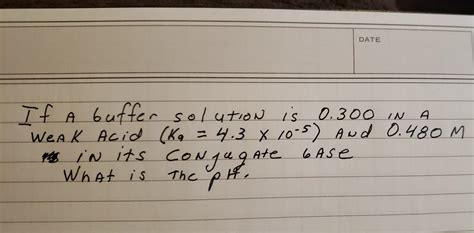 DATE
If A buffer solution is 0.300 IN A
WEAK Acid (Ka = 4.3 x 10-5) AND 0.480 M
in its CONjugAte bASE
WHAt is The pH.